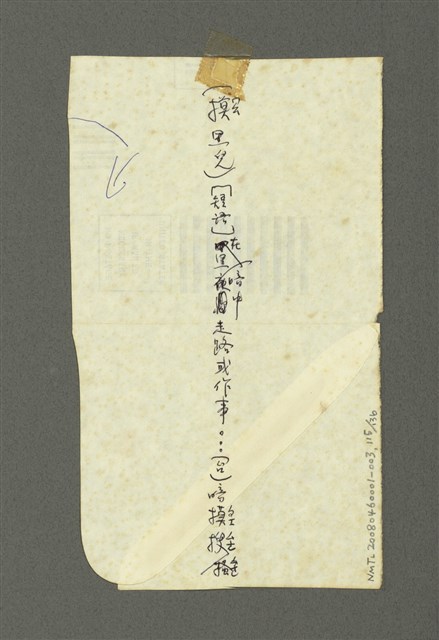 (摸黑兒)[短语]黑夜在暗中走路或作事。:[台]暗摸摸
NMTL20080460001-003,115/136